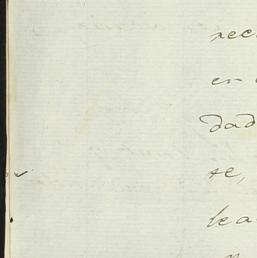 rec
en
dad
se,
lea